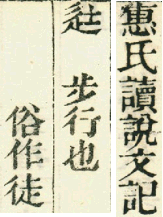 惠氏讀說文記
𨑒 步行也
俗作徒